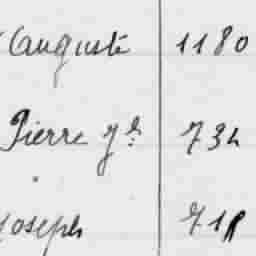 Auguste 1180
Pierre 734
Joseph 718